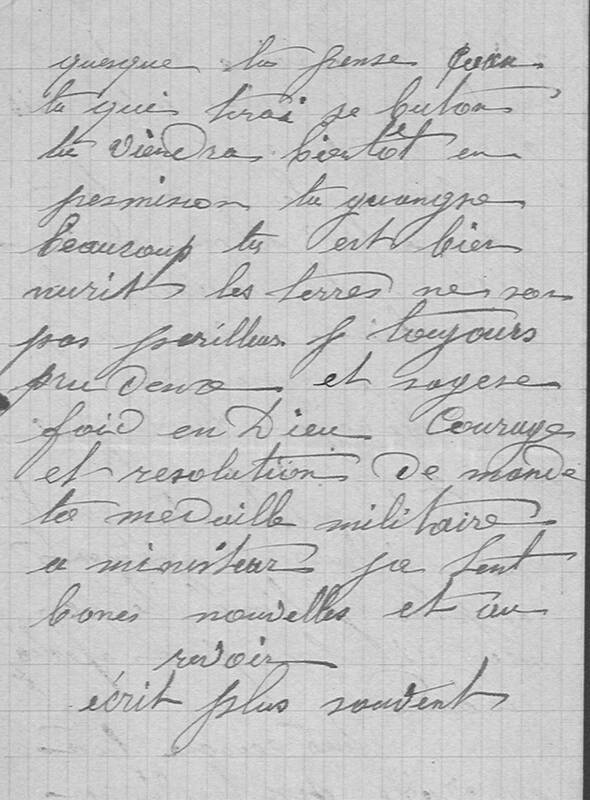 quesque tu pense quan
tu qui tirai se buton
tu viendra bientot en
permision tu guangne
beaucoup tu est bien
nurit les terres ne son
pas perilleus toujours
prudence et sagese
foid en Dieu Courage
et resolution de mande
ta medaille militaire
a ministeur ja tent
bones nouvelles et au
revoir
écrit plus souvent